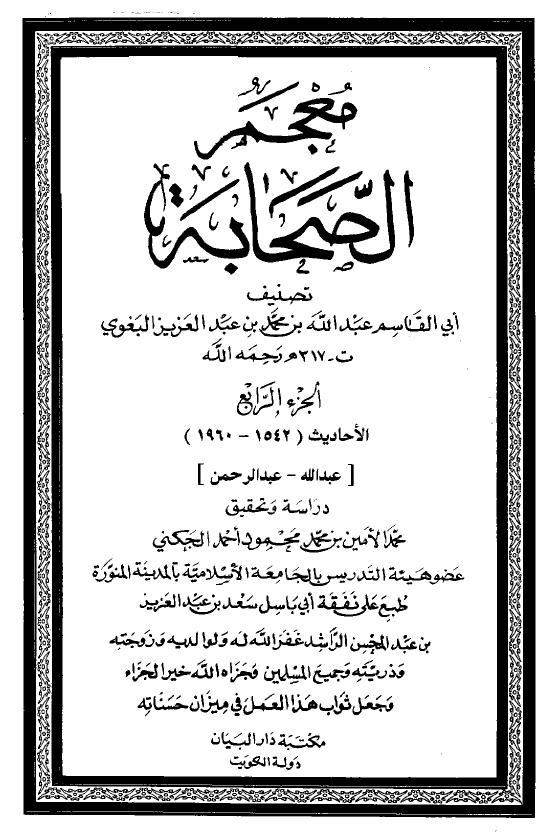 معجم
الصحابة
تصنيف
أبي القاسم عبد الله بن محمد بن عبد العزيز البغوي
ت ـ ٣١٧ هـ رحمه الله
الجزء الرابع
الأحاديث ( ١٥٤٢ - ١٩٦٠ )
[ عبدالله - عبدالرحمن ]
دراسة وتحقيق
محمد الأمين بن محمد محمود أحمد الجكني
عضو هيئة التدريس بالجامعة الأسلامية بالمدينة المنورة
طبع على نفقة أبي باسل سعد بن عبد العزيز
بن عبد المحسن الراشد غفر الله له ولوالديه وزوجته
وذريته وجميع المسلمين وجزاه الله خير الجزاء
وجعل ثواب هذا العمل في ميزان حسناته
مكتبة دار البيان
دولة الكويت